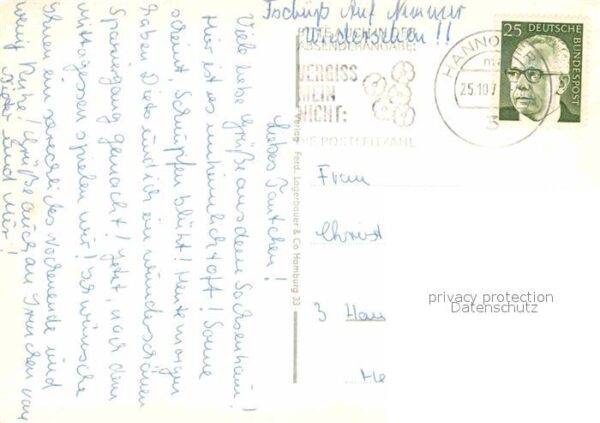 Tschüß Auf Nimmer
Wiedersehen !!
Liebes Tantchen!
Viele liebe Grüße aus dem Sachsenhain!
Hier ist es unheimlich toll! Sonne
scheint Schnupfen blüht! Heute morgen
haben Dieto und ich ein wunderschönen
Spaziergang gemacht! Jetzt, nach dem
Mittagessen spielen wir! Ich wünsche
Ihnen ein Wochenende und
wenig Ruhe! Grüße auch an von
und Mir!
BITTE
ABSENDERANGABE:
VERGISS
MEIN
NICHT:
DIE POSTLEITZAHL
HANNO
25.10.7
3
25 DEUTSCHE
BUNDESPOST
Verlag Ferd. Lagerbauer & Co Hamburg 33
Frau
Christ
3 Han
He
privacy protection
Datenschutz